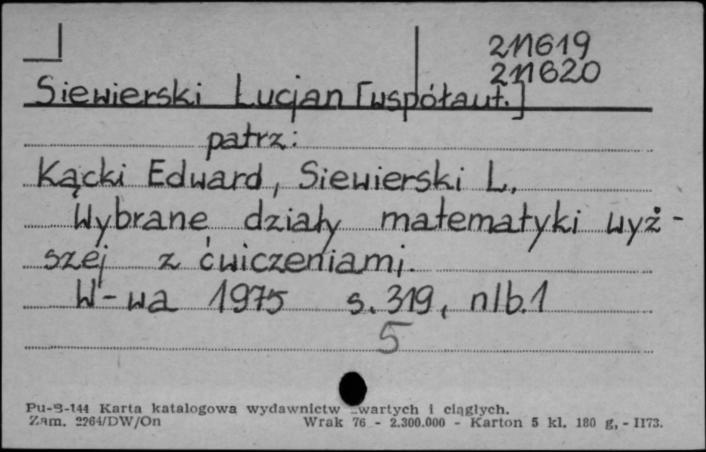 211619
211620
Siewierski Lucjan [współaut.]
patrz:
Kącki Edward, Siewierski L.,
Wybrane działy matematyki wyż-
szej z ćwiczeniami.
W-wa 1975 s. 319, nlb. 1
5
Pu-B-144 Karta katalogowa wydawnictw zwartych i ciągłych.
Zam. 2264/DW/On Wrak 76 - 2.300.000 - Karton 5 kl. 180 g, - I173.